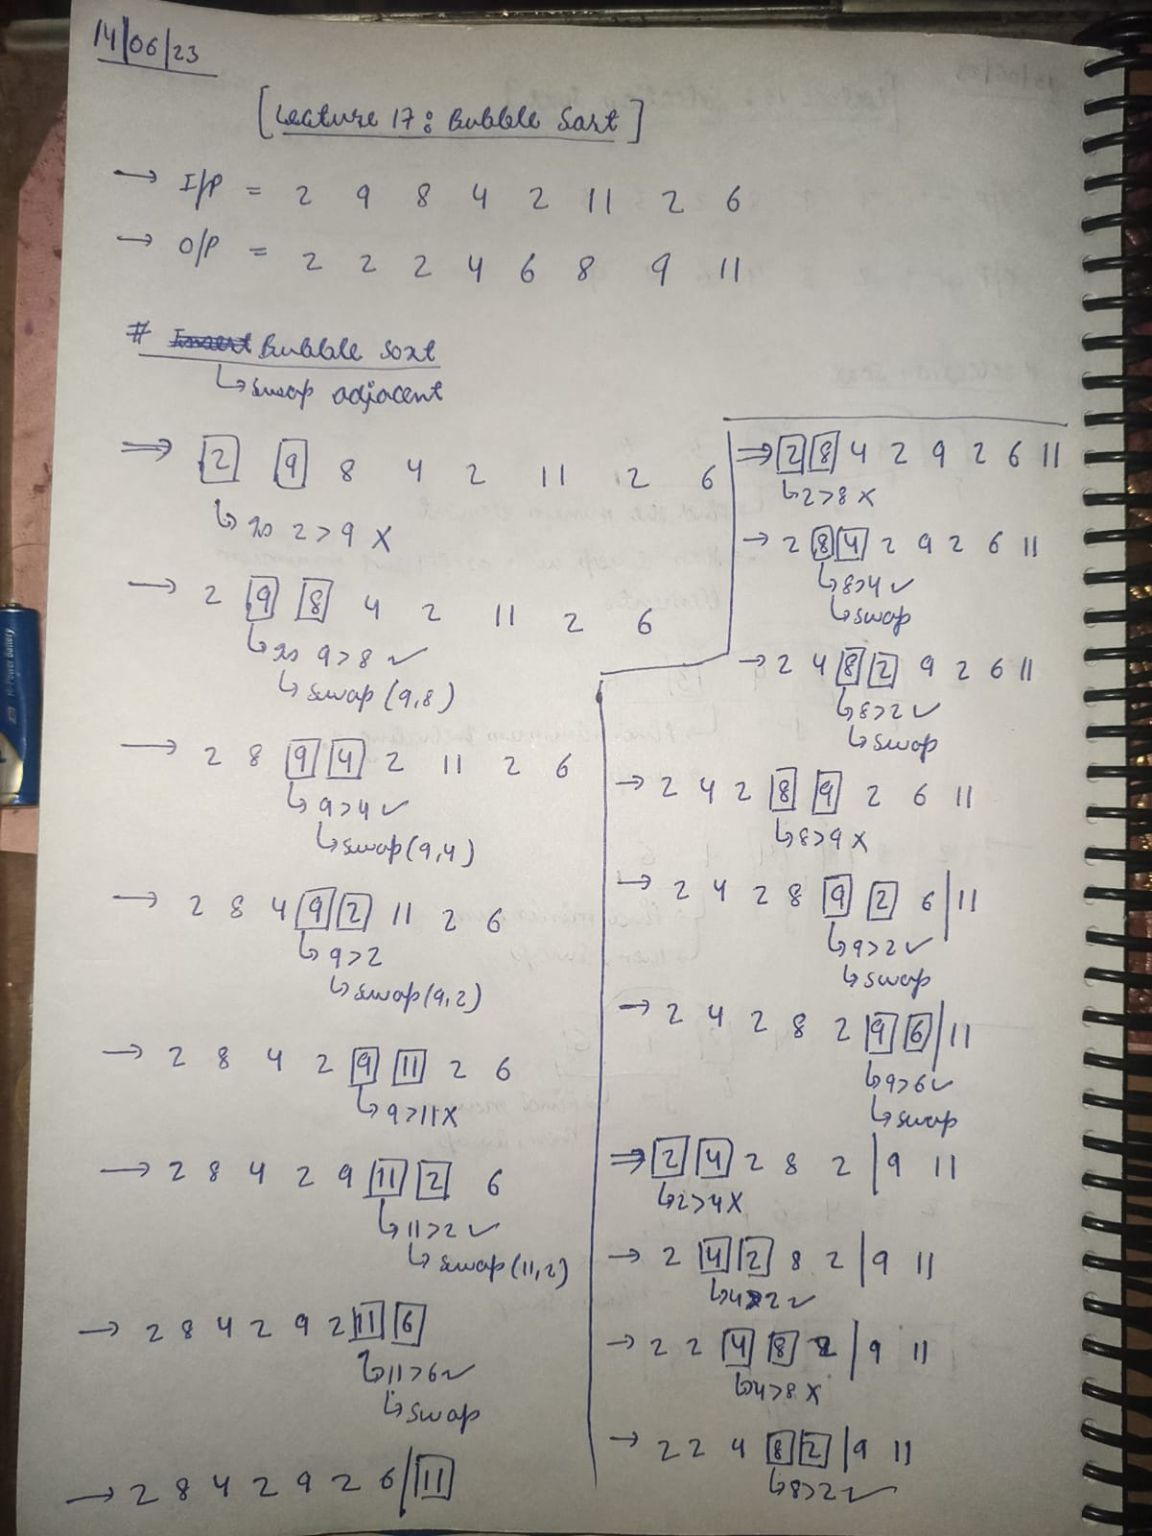 14/06/23
[Lecture 17: Bubble Sort]
→ I/P = 2 9 8 4 2 11 2 6
→ O/P = 2 2 2 4 6 8 9 11
# Bubble Sort
↳ swap adjacent
⇒ 2 9 8 4 2 11 2 6
↳ is 2 > 9 X
→ 2 9 8 4 2 11 2 6
↳ is 9 > 8 ✓
↳ swap (9,8)
→ 2 8 9 4 2 11 2 6
↳ 9>4 ✓
↳ swap (9,4)
→ 2 8 4 9 2 11 2 6
↳ 9>2
↳ swap (9,2)
→ 2 8 4 2 9 11 2 6
↳ 9>11 X
→ 2 8 4 2 9 11 2 6
↳ 11>2 ✓
↳ swap (11,2)
→ 2 8 4 2 9 2 11 6
↳ 11>6 ✓
↳ swap
→ 2 8 4 2 9 2 6 | 11
⇒ 2 8 4 2 9 2 6 11
↳ 2>8 X
→ 2 8 4 2 9 2 6 11
↳ 8>4 ✓
↳ swap
→ 2 4 8 2 9 2 6 11
↳ 8>2 ✓
↳ swap
→ 2 4 2 8 9 2 6 11
↳ 8>9 X
→ 2 4 2 8 9 2 6 | 11
↳ 9>2 ✓
↳ swap
→ 2 4 2 8 2 9 6 | 11
↳ 9>6 ✓
↳ swap
⇒ 2 4 2 8 2 | 9 11
↳ 2>4 X
→ 2 4 2 8 2 | 9 11
↳ 4>2 ✓
→ 2 2 4 8 2 | 9 11
↳ 4>8 X
→ 2 2 4 8 2 | 9 11
↳ 8>2 ✓